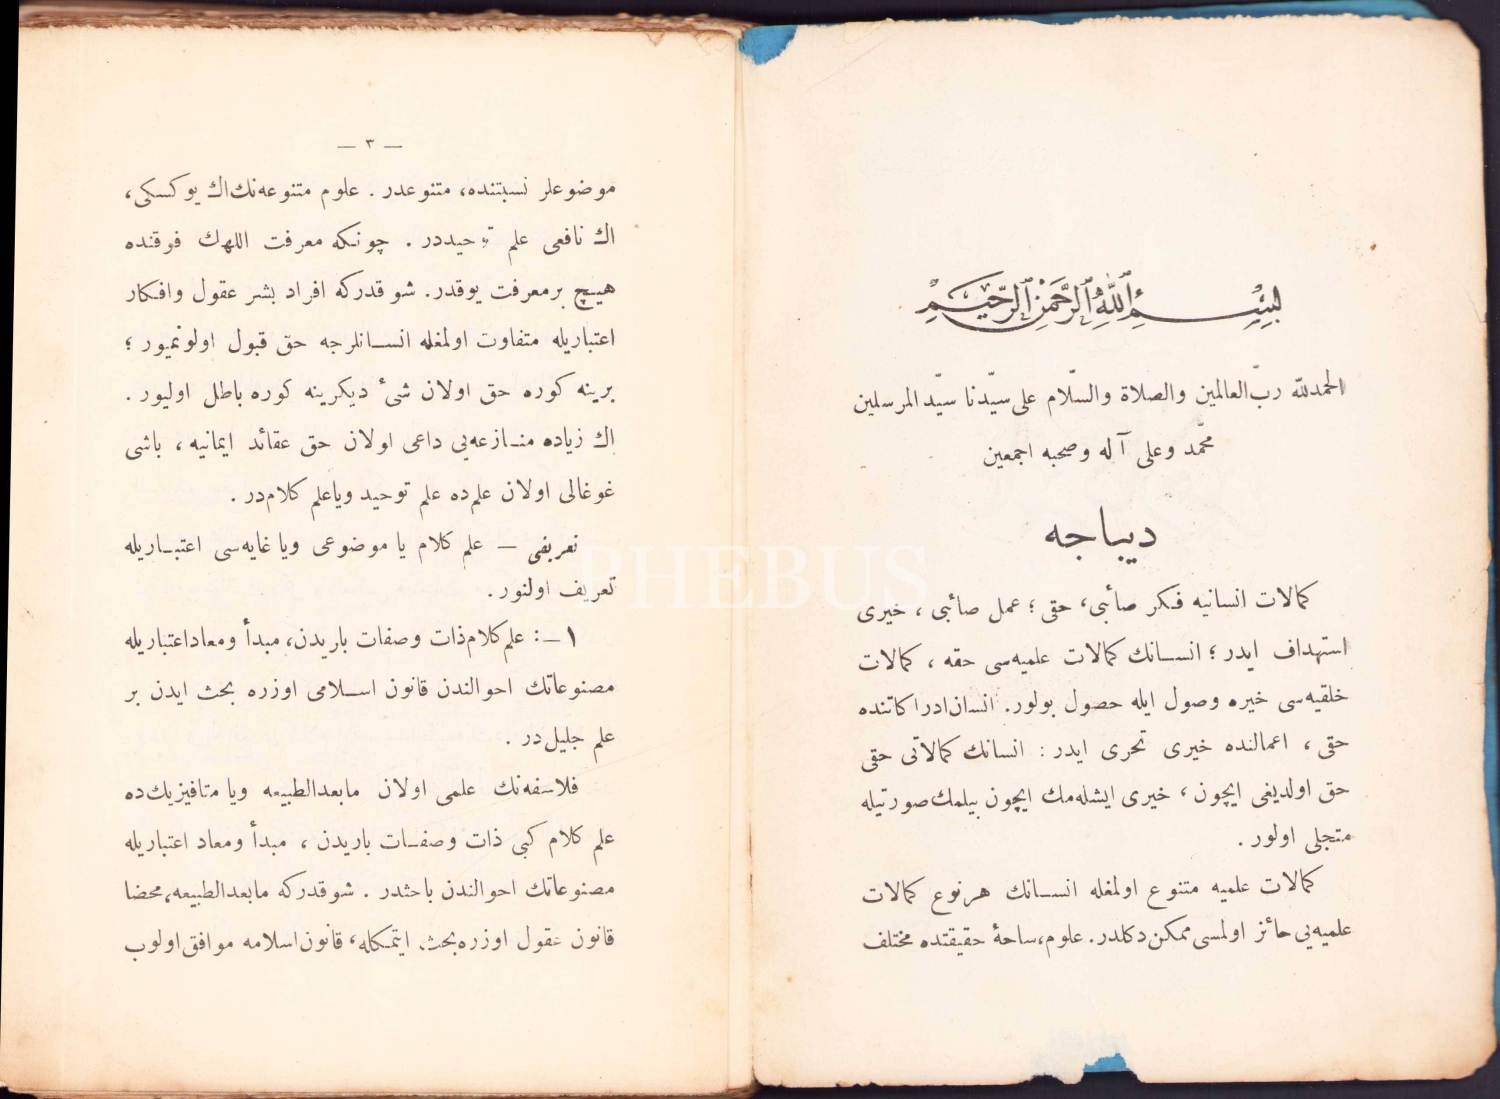 بِسْمِ ٱللّٰهِ ٱلرَّحْمٰنِ ٱلرَّحِيمِ
الحمدلله ربّ العالمين والصلاة والسّلام على سيّدنا سيّد المرسلين
محمّد وعلى آله وصحبه اجمعين
ديباجه
كمالات انسانيه فكر صائبى، حقى؛ عمل صائبى، خيرى
استهداف ايدر؛ انسانك كمالات علميه‌سى حقه، كمالات
خلقيه‌سى خيره وصول ايله حصول بولور. انسان ادراكاتنده
حقى، اعمالنده خيرى تحرى ايدر: انسانك كمالاتى حقى
حق اولديغى ايچون، خيرى ايشله‌مك ايچون بيلمك صورتيله
متجلى اولور.
كمالات علميه متنوع اولمغله انسانك هر نوع كمالات
علميه‌يى حائز اولمسى ممكن دكلدر. علوم، ساحهٔ حقيقتده مختلف
— ٣ —
موضوعلر نسبتنده، متنوعدر. علوم متنوعه‌نك اك يوكسكى،
اك نافعى علم توحيددر. چونكه معرفت اللهك فوقنده
هيچ برمعرفت يوقدر. شو قدركه افراد بشر عقول وافكار
اعتباريله متفاوت اولمغله انسانلرجه حق قبول اولونميور؛
برينه كوره حق اولان شئ ديكرينه كوره باطل اوليور.
اك زياده منازعه‌يى داعى اولان حق عقائد ايمانيه، باشى
غوغالى اولان علم‌ده علم توحيد وياعلم كلام‌در.
تعريفى — علم كلام يا موضوعى ويا غايه‌سى اعتباريله
تعريف اولنور.
١ –: علم كلام ذات وصفات باريدن، مبدأ ومعاد اعتباريله
مصنوعاتك احوالندن قانون اسلامى اوزره بحث ايدن بر
علم جليل‌در.
فلاسفه‌نك علمى اولان مابعدالطبيعه ويا متافيزيك‌ده
علم كلام كبى ذات وصفات باريدن، مبدأ ومعاد اعتباريله
مصنوعاتك احوالندن باحثدر. شوقدركه مابعدالطبيعه، محضا
قانون عقول اوزره بحث ايتمكله، قانون اسلامه موافق اولوب
PHEBUS